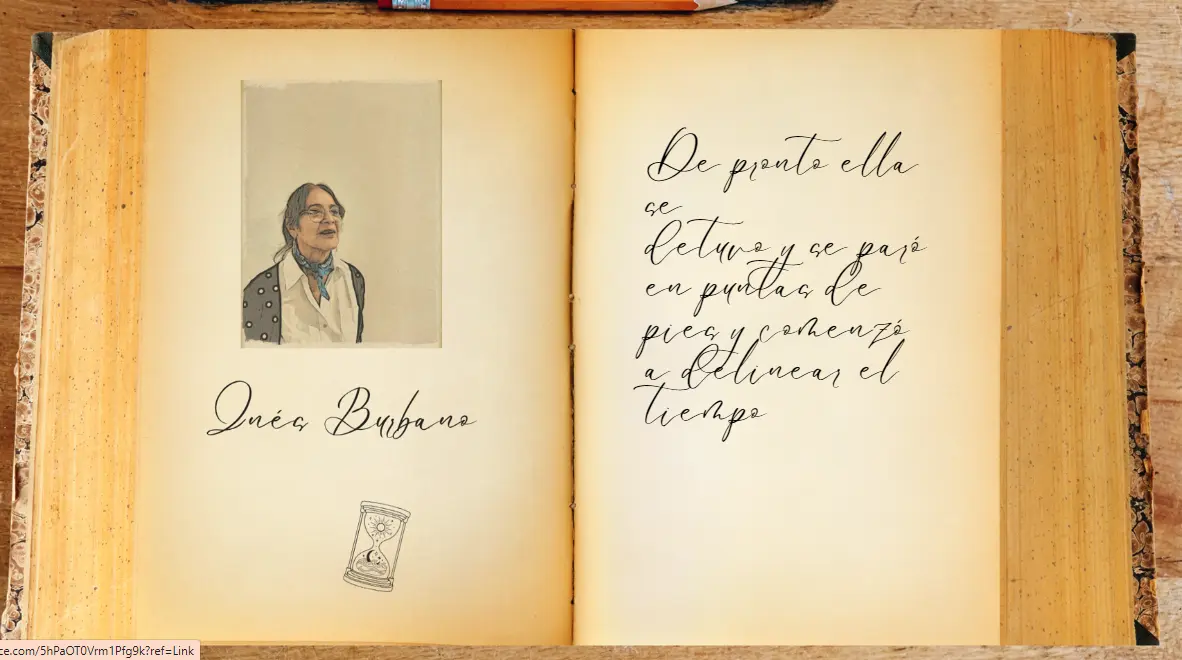 Inés Burbano
De pronto ella
se
detuvo y se paró
en puntas de
pies y comenzó
a delinear el
tiempo
ce.com/5hPaOT0Vrm1Pfg9k?ref=Link